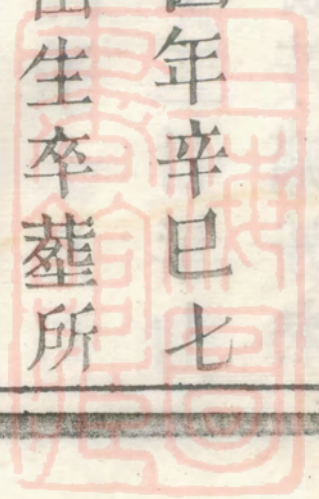 年辛巳七
生卒塟所